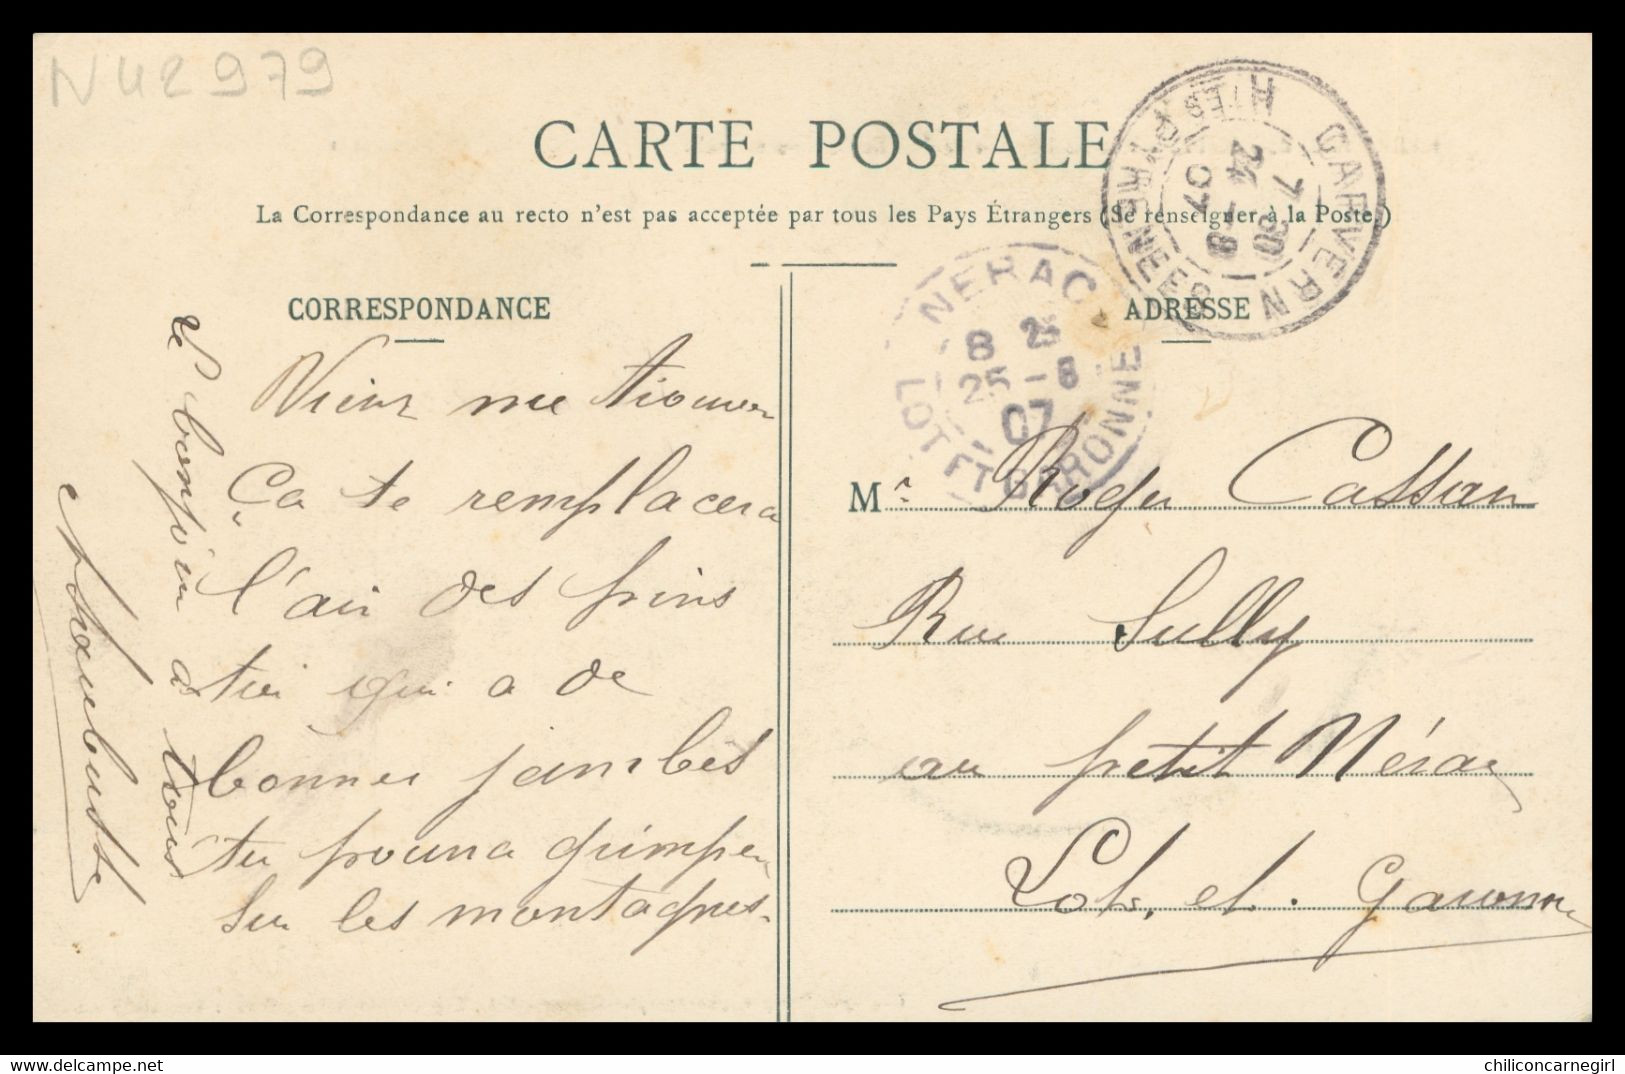 N42979
CARTE POSTALE
La Correspondance au recto n'est pas acceptée par tous les Pays Étrangers (Se renseigner à la Poste.)
CORRESPONDANCE
Viens me trouver
Ca te remplacera
l'air des pins
toi qui a de
bonnes jambes
tu pourra grimper
sur les montagnes.
le bonjour a tous
GARVERN
HTES PYRENEES
7 30
24 -8
07
NERAC
LOT ET GARONNE
8 25
25 -8
07
ADRESSE
Mr. Roger Cassan
Rue Sully
au petit Nérac
Lot. et. Garonne
chiliconcarnegirl